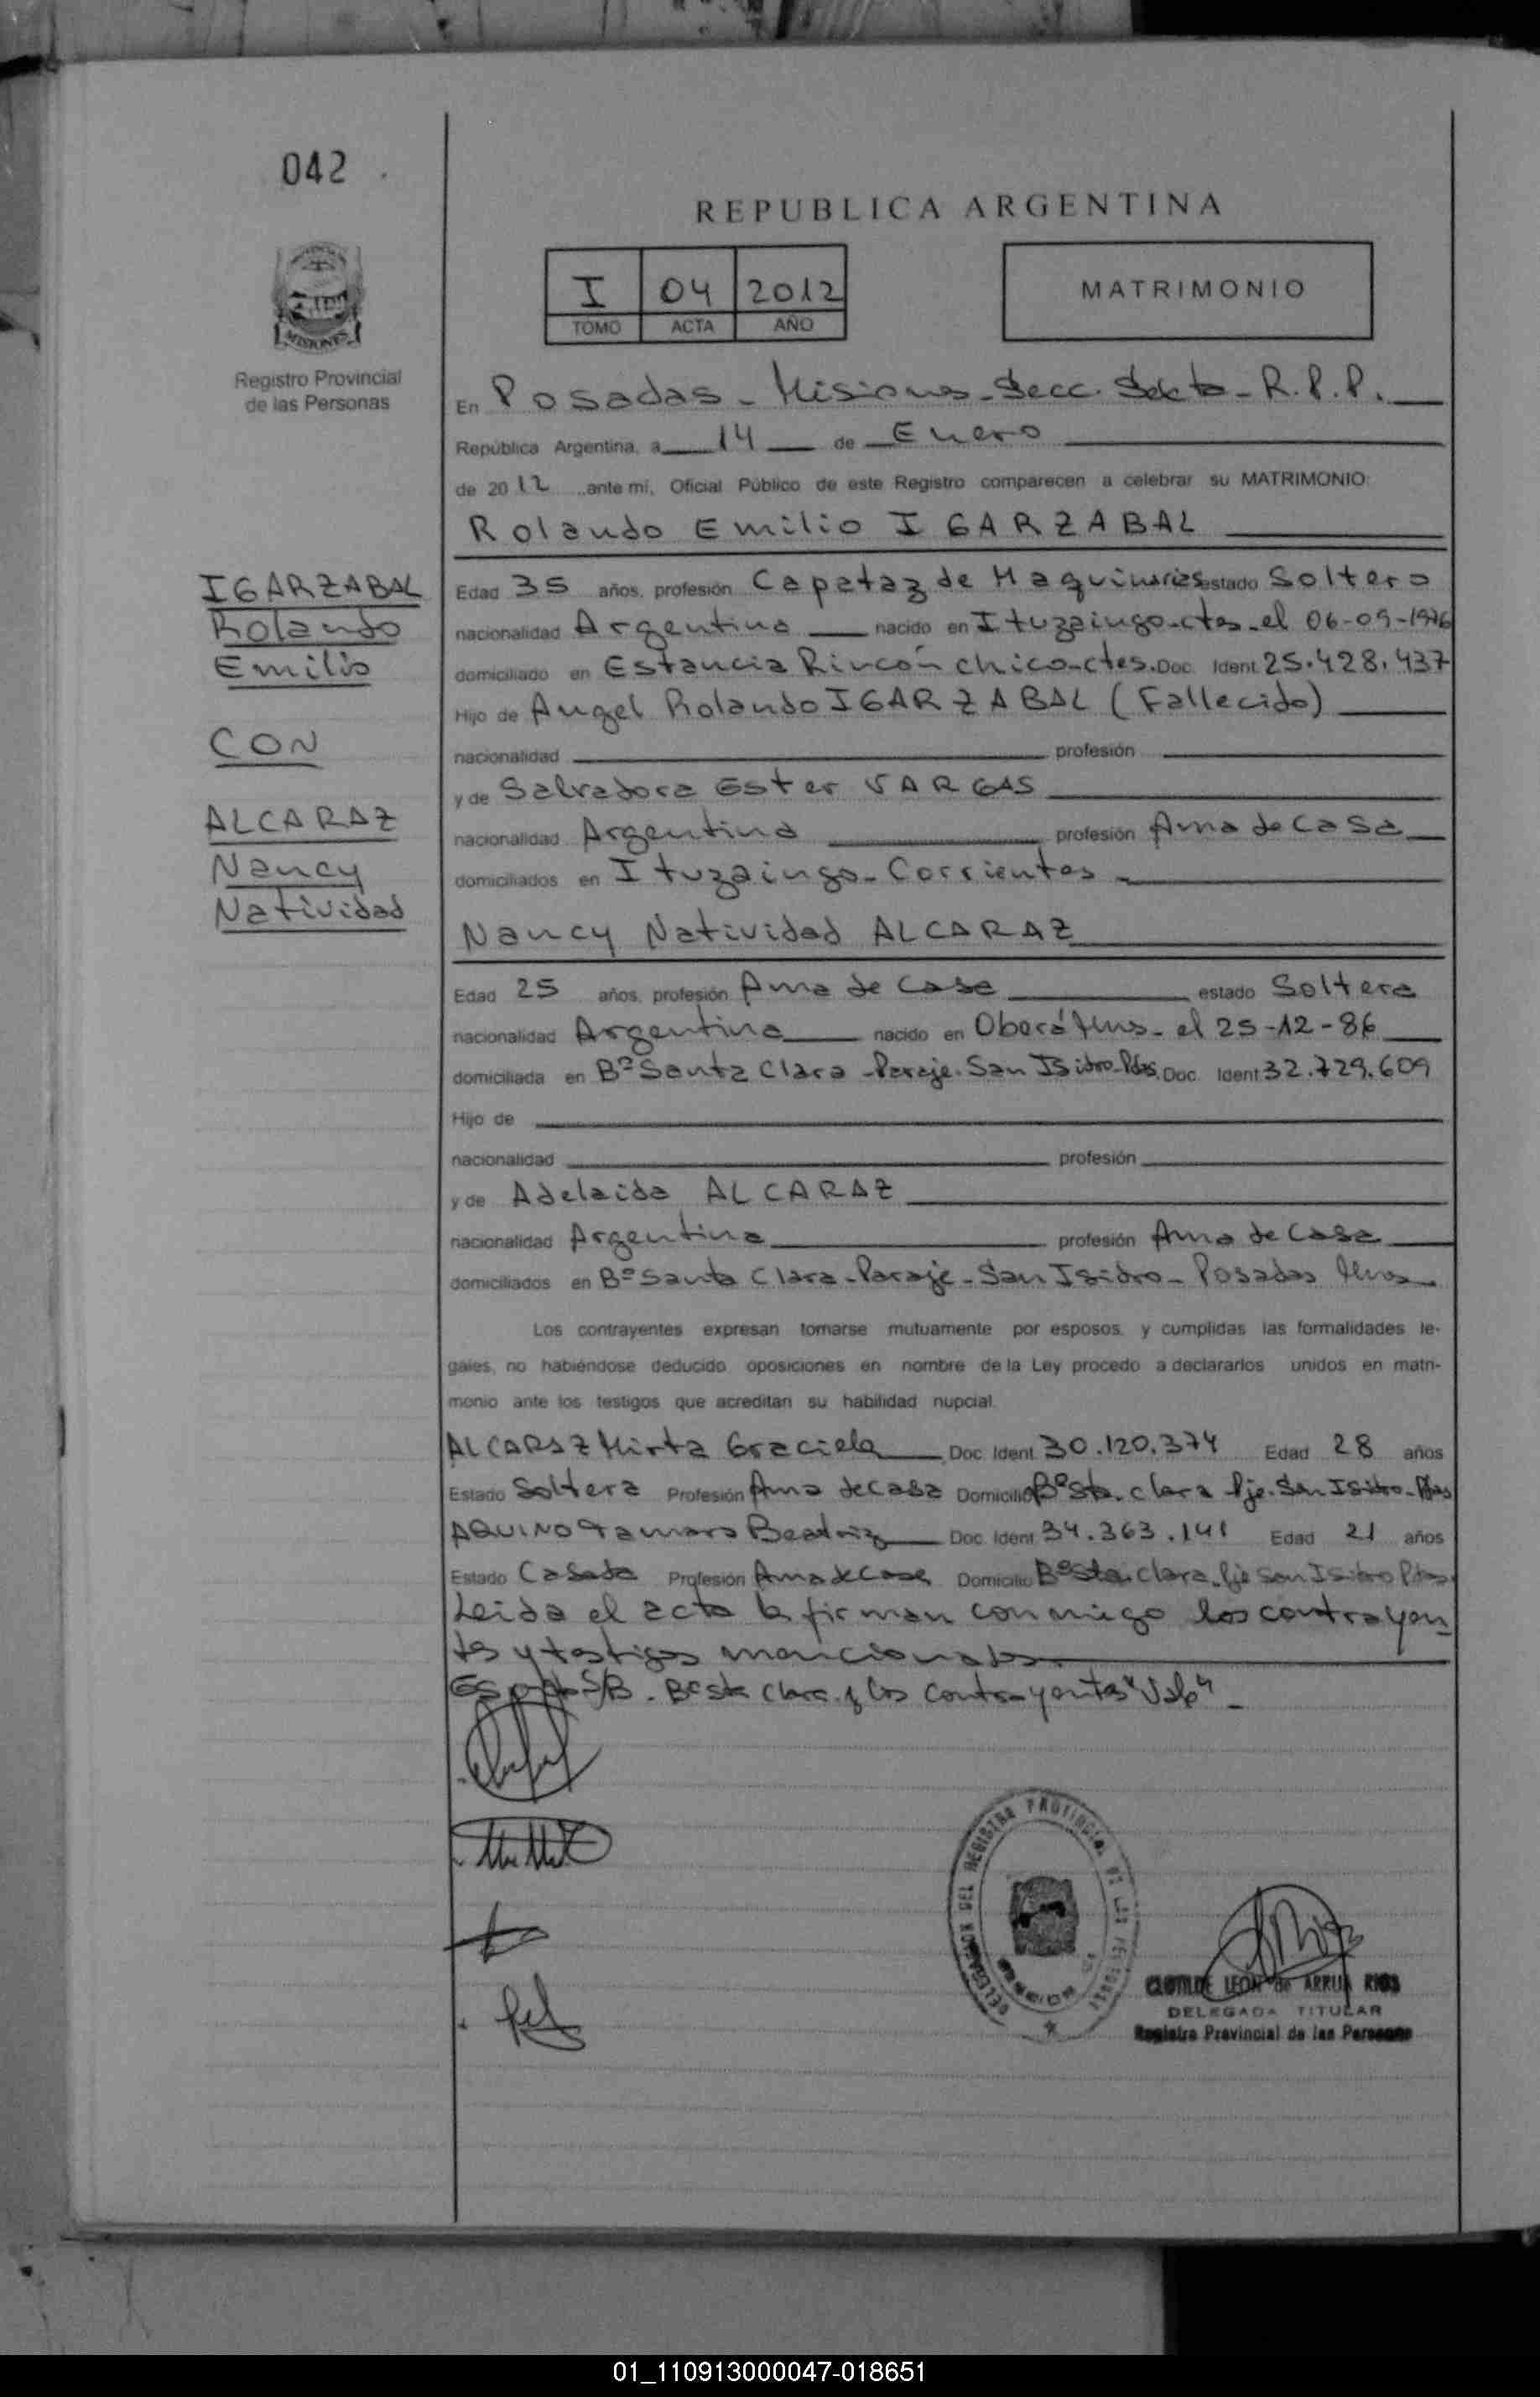 042
REPUBLICA ARGENTINA
I 04 2012
TOMO ACTA AÑO
MATRIMONIO
MISIONES
Registro Provincial
de las Personas
En Posadas - Misiones - Secc. Sexta - R.P.P.
República Argentina, a 14 de Enero
de 2012 ante mí, Oficial Público de este Registro comparecen a celebrar su MATRIMONIO:
Rolando Emilio IGARZABAL
IGARZABAL
Rolando
Emilio
CON
ALCARAZ
Nancy
Natividad
Edad 35 años, profesión Capataz de Maquinarias estado Soltero
nacionalidad Argentina nacido en Ituzaingo-ctes-el 06-09-1976
domiciliado en Estancia Rincón chico-ctes. Doc. Ident. 25.428.437
Hijo de Angel Rolando IGARZABAL (Fallecido)
nacionalidad profesión
y de Salvadora Ester VARGAS
nacionalidad Argentina profesión Ama de Casa
domiciliados en Ituzaingo - Corrientes -
Nancy Natividad ALCARAZ
Edad 25 años, profesión Ama de Casa estado Soltera
nacionalidad Argentina nacido en Oberá Mns - el 25-12-86
domiciliada en Bº Santa Clara - Paraje - San Isidro - Pdas. Doc. Ident. 32.729.609
Hijo de
nacionalidad profesión
y de Adelaida ALCARAZ
nacionalidad Argentina profesión Ama de Casa
domiciliados en Bº Santa Clara - Paraje - San Isidro - Posadas Mnes
Los contrayentes expresan tomarse mutuamente por esposos, y cumplidas las formalidades le-
gales, no habiéndose deducido oposiciones en nombre de la Ley procedo a declararlos unidos en matri-
monio ante los testigos que acreditan su habilidad nupcial.
ALCARAZ Mirta Graciela Doc. Ident. 30.120.374 Edad 28 años
Estado Soltera Profesión Ama de Casa Domicilio Bº Sta. Clara Pje. San Isidro - Pdas
AQUINO Tamara Beatriz Doc. Ident. 34.363.141 Edad 21 años
Estado Casada Profesión Ama de Casa Domicilio Bº Sta. Clara. Pje San Isidro Pdas.
Leida el acta la firman conmigo los contrayen
tes y testigos mencionados.
S/B - Bº Sta Clara y los contrayentes "Vale" -
DELEGACION DEL REGISTRO PROVINCIAL DE LAS PERSONAS
CLOTILDE LEON de ARRUA RIOS
DELEGADA TITULAR
Registro Provincial de las Personas
01_110913000047-018651